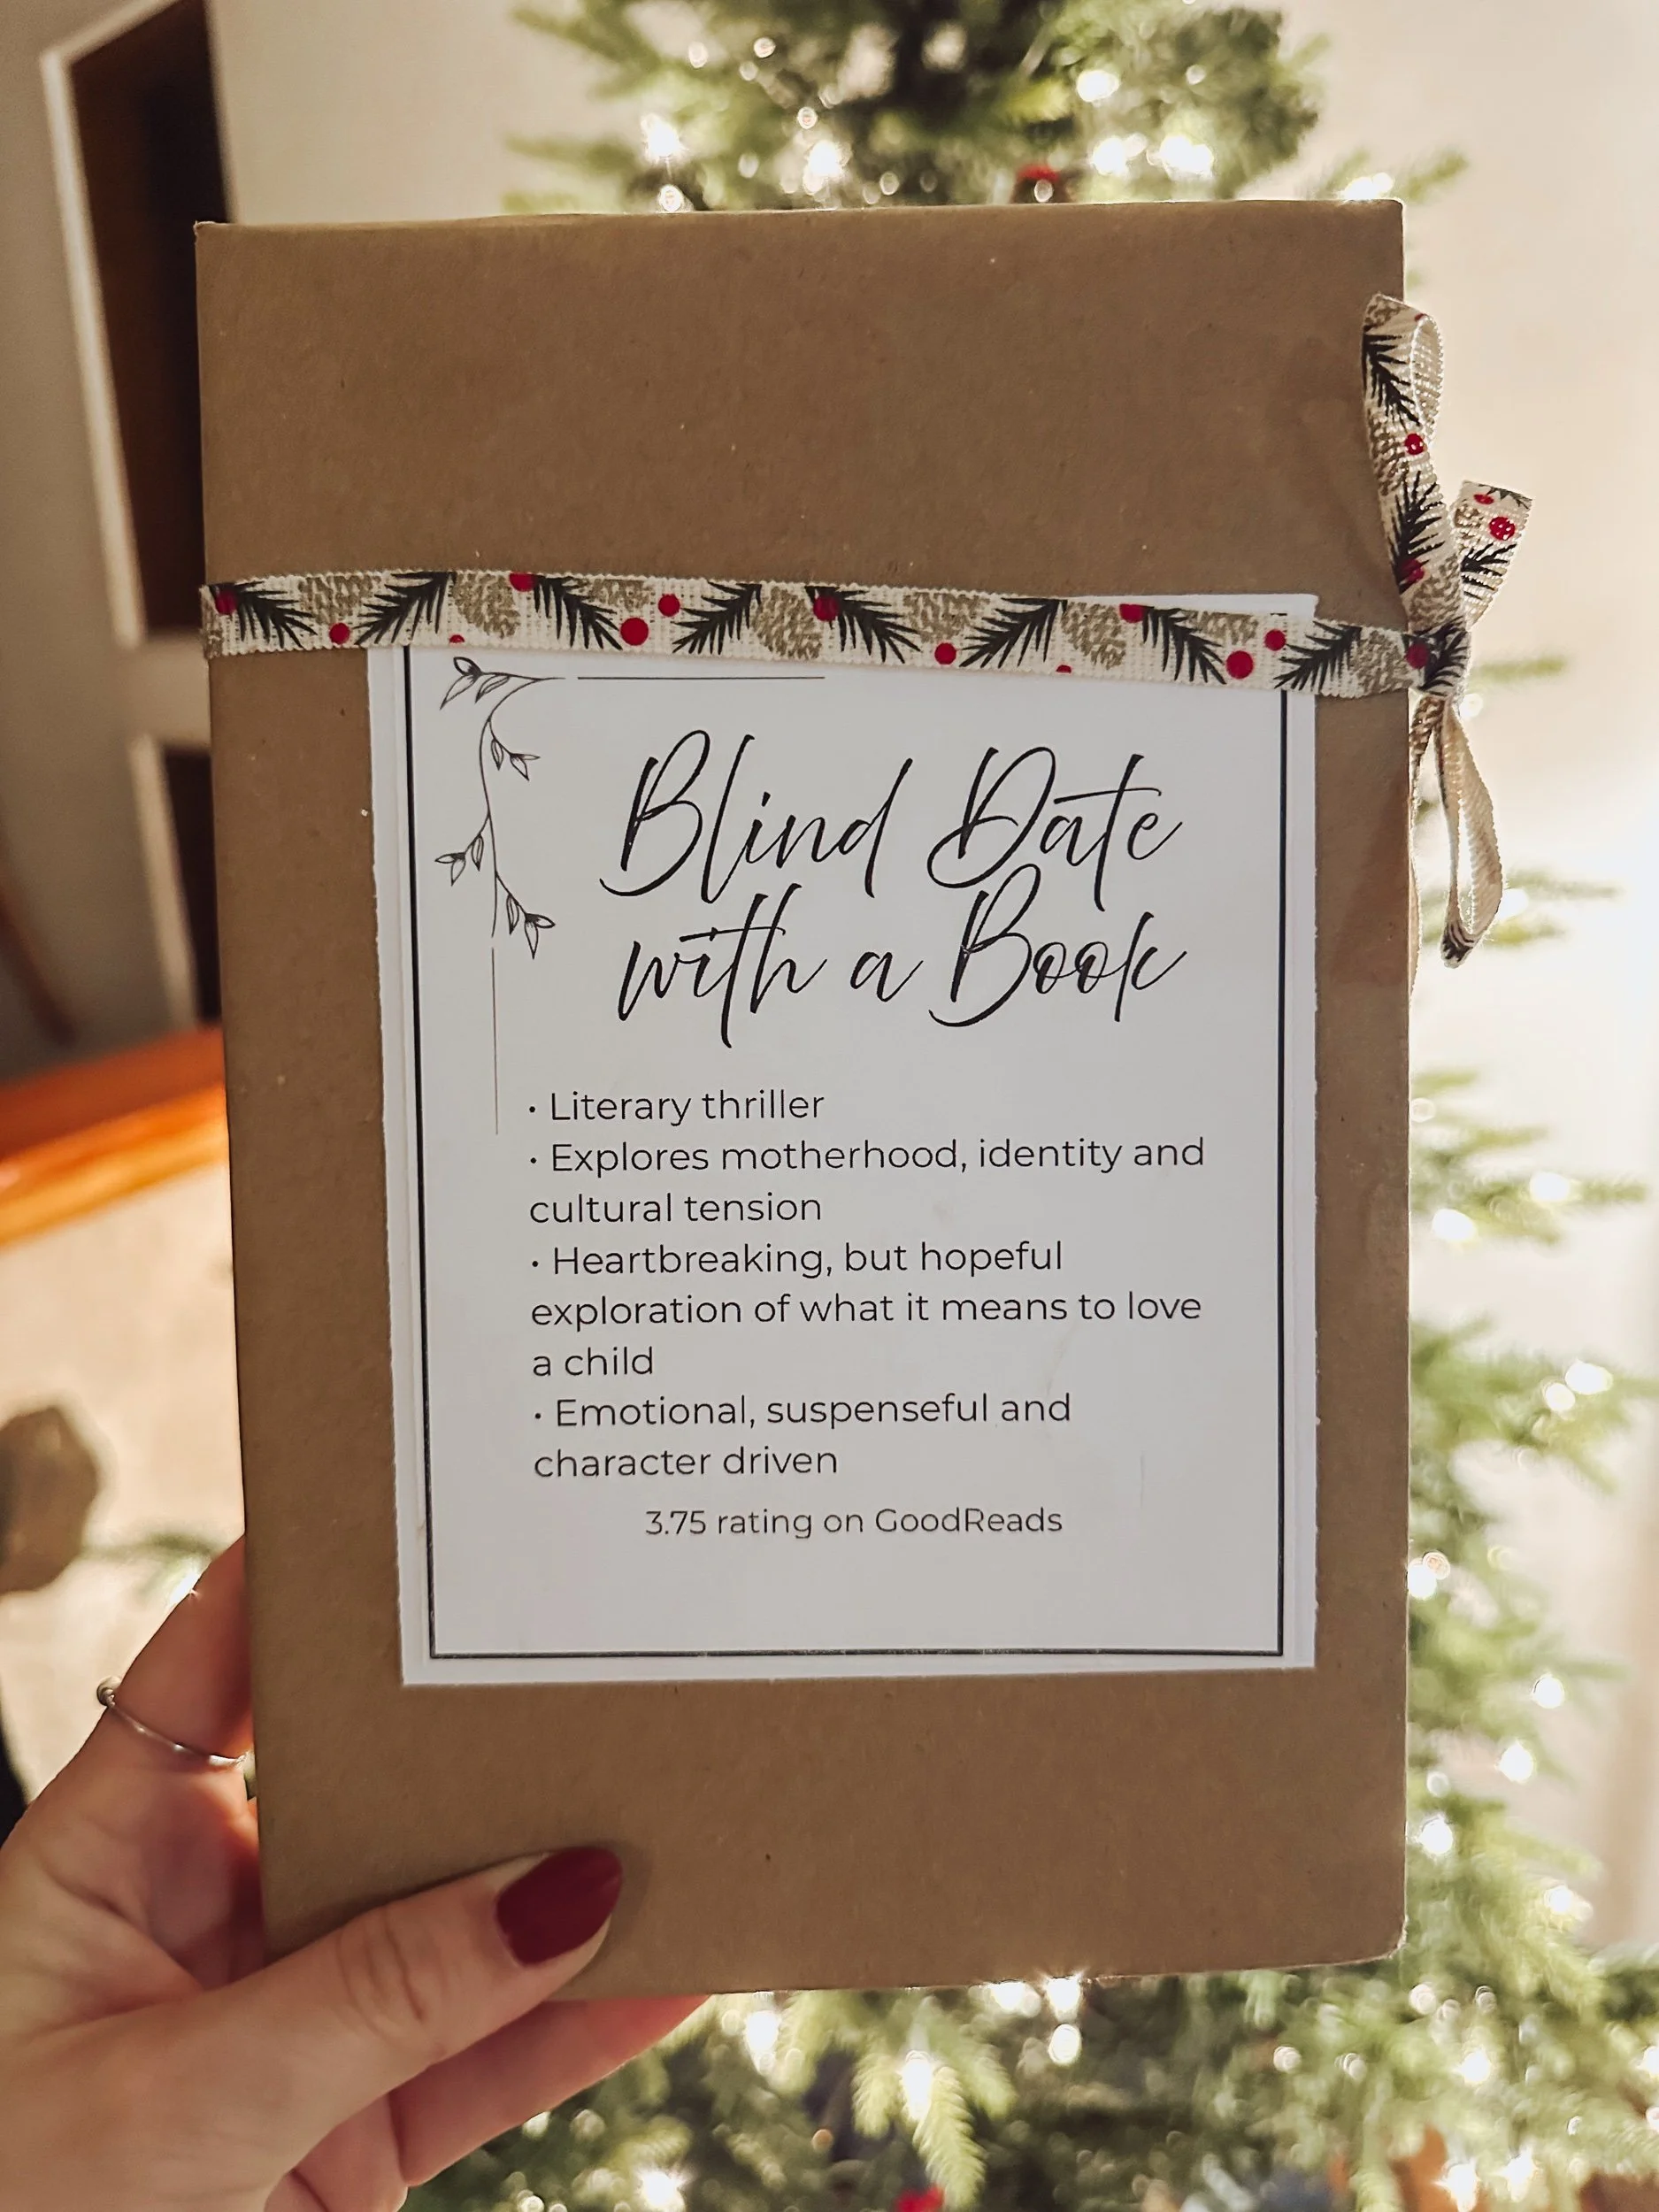 Blind Date
with a Book
• Literary thriller
• Explores motherhood, identity and
cultural tension
• Heartbreaking, but hopeful
exploration of what it means to love
a child
• Emotional, suspenseful and
character driven
3.75 rating on GoodReads